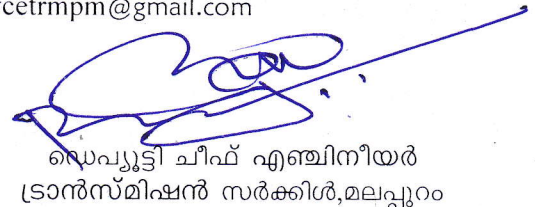 rcetrmpm@gmail.com
ഡെപ്യൂട്ടി ചീഫ് എഞ്ചിനീയർ
ട്രാൻസ്മിഷൻ സർക്കിൾ,മലപ്പുറം